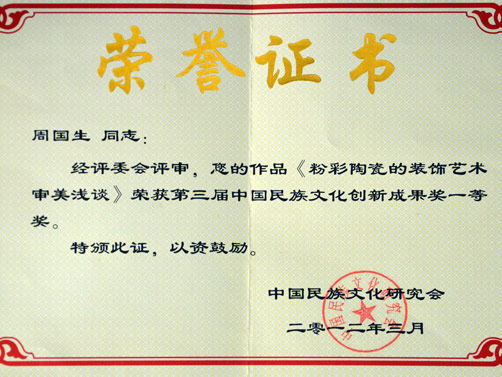 荣誉证书
周国生 同志：
经评委会评审，您的作品《粉彩陶瓷的装饰艺术
审美浅谈》荣获第三届中国民族文化创新成果奖一等
奖。
特颁此证，以资鼓励。
中国民族文化研究会
二零一二年三月
中国民族文化研究会